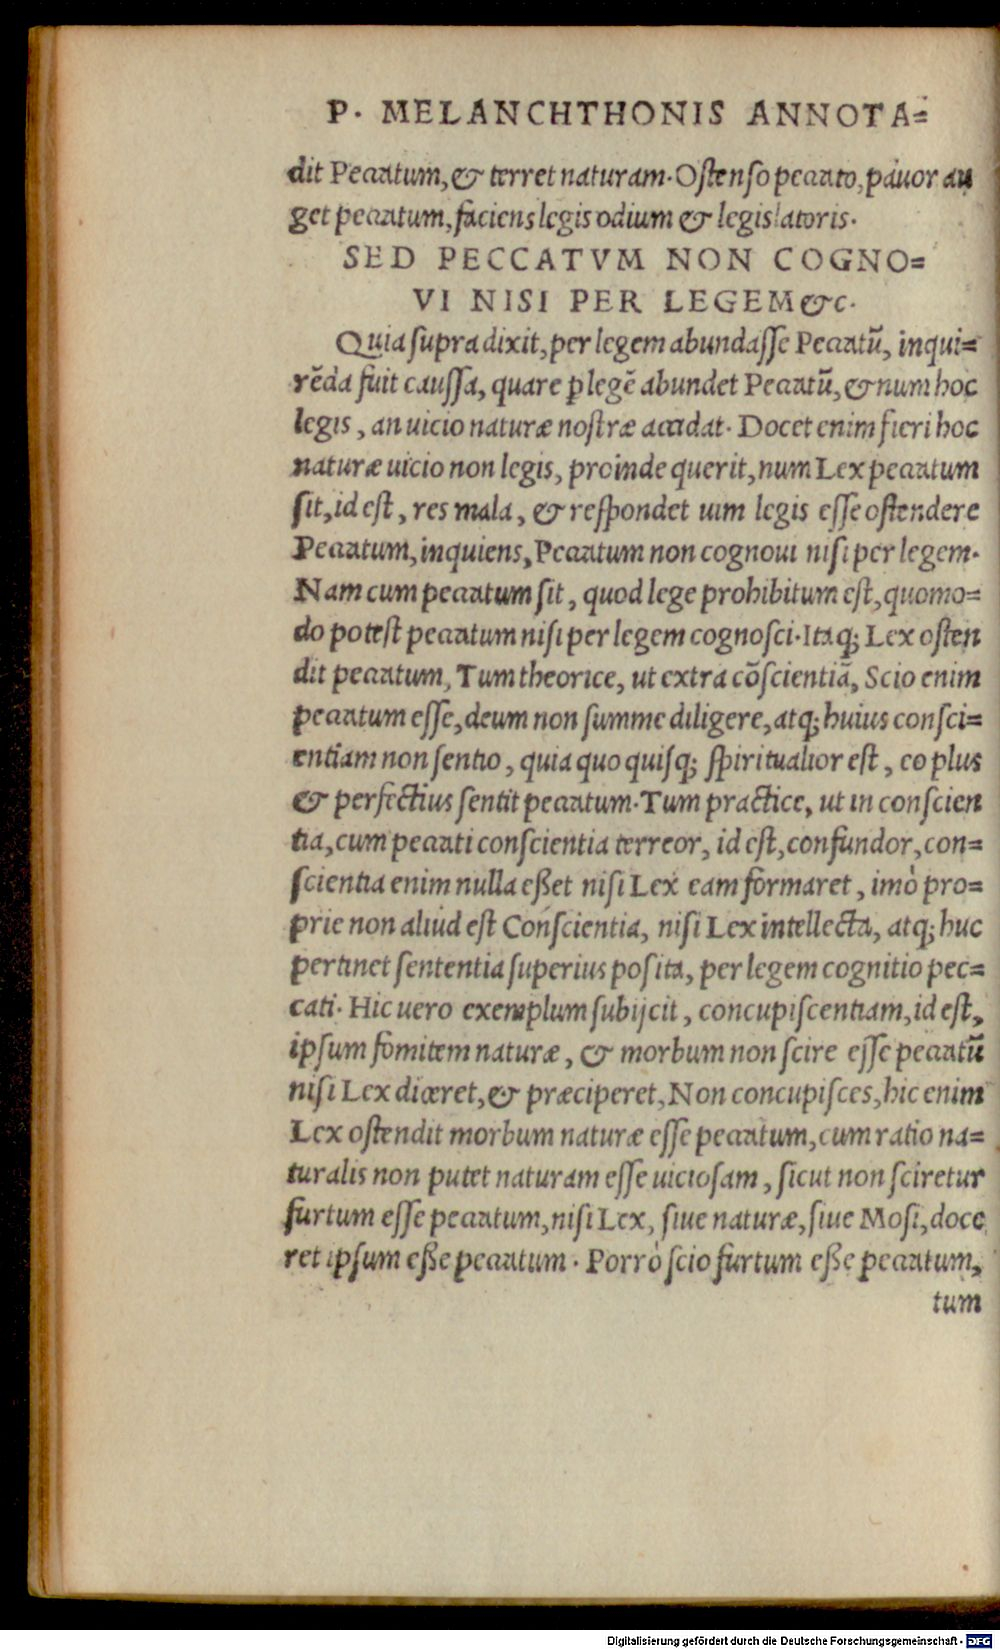 P. MELANCHTHONIS ANNOTA=
dit Peccatum, & terret naturam. Ostenso peccato, pauor au
get peccatum, faciens legis odium & legislatoris.
SED PECCATVM NON COGNO=
VI NISI PER LEGEM &c.
Quia supra dixit, per legem abundasse Peccatũ, inqui=
rẽda fuit caussa, quare ꝑ legẽ abundet Peccatũ, & num hoc
legis, an uicio naturæ nostræ accidat. Docet enim fieri hoc
naturæ uicio non legis, proinde querit, num Lex peccatum
sit, id est, res mala, & respondet uim legis esse ostendere
Peccatum, inquiens, Peccatum non cognoui nisi per legem.
Nam cum peccatum sit, quod lege prohibitum est, quomo=
do potest peccatum nisi per legem cognosci. Itaq; Lex osten
dit peccatum, Tum theorice, ut extra cõscientiã, Scio enim
peccatum esse, deum non summe diligere, atq; huius consci=
entiam non sentio, quia quo quisq; spiritualior est, eo plus
& perfectius sentit peccatum. Tum practice, ut in conscien
tia, cum peccati conscientia terreor, id est, confundor, con=
scientia enim nulla eßet nisi Lex eam formaret, imò pro=
prie non aliud est Conscientia, nisi Lex intellecta, atq; huc
pertinet sententia superius posita, per legem cognitio pec=
cati. Hic uero exemplum subijcit, concupiscentiam, id est,
ipsum fomitem naturæ, & morbum non scire esse peccatũ
nisi Lex diceret, & præciperet, Non concupisces, hic enim
Lex ostendit morbum naturæ esse peccatum, cum ratio na=
turalis non putet naturam esse uiciosam, sicut non sciretur
furtum esse peccatum, nisi Lex, siue naturæ, siue Mosi, doce
ret ipsum eße peccatum. Porrò scio furtum eße peccatum,
tum
Digitalisierung gefördert durch die Deutsche Forschungsgemeinschaft - DFG